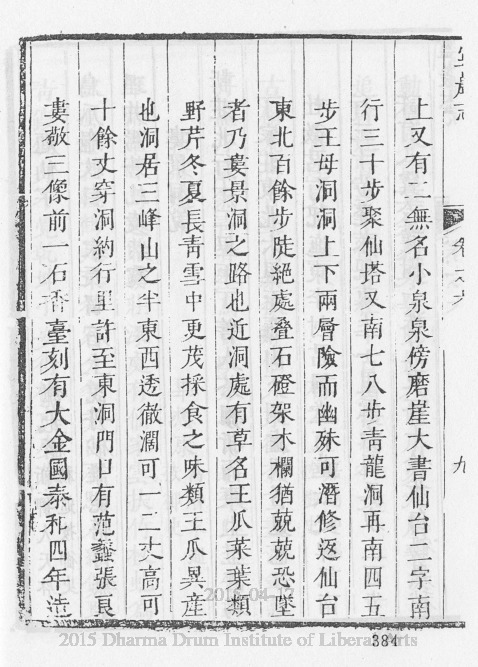 上又有二無名小泉泉傍磨崖大書仙台二字南
行三十步聚仙塔又南七八步青龍洞再南四五
步王母洞洞上下兩層險而幽殊可潛修返仙台
東北百餘步陡絕處叠石磴架木欄猶兢兢恐墜
者乃婁景洞之路也近洞處有草名王瓜菜葉類
野芹冬夏長青雪中更茂採食之味類王瓜異産
也洞居三峰山之半東西透徹濶可一二丈高可
十餘丈穿洞約行里許至東洞門口有范蠡張良
婁敬三像前一石香臺刻有大金國泰和四年造
九
384
2015 Dharma Drum Institute of Liberal Arts